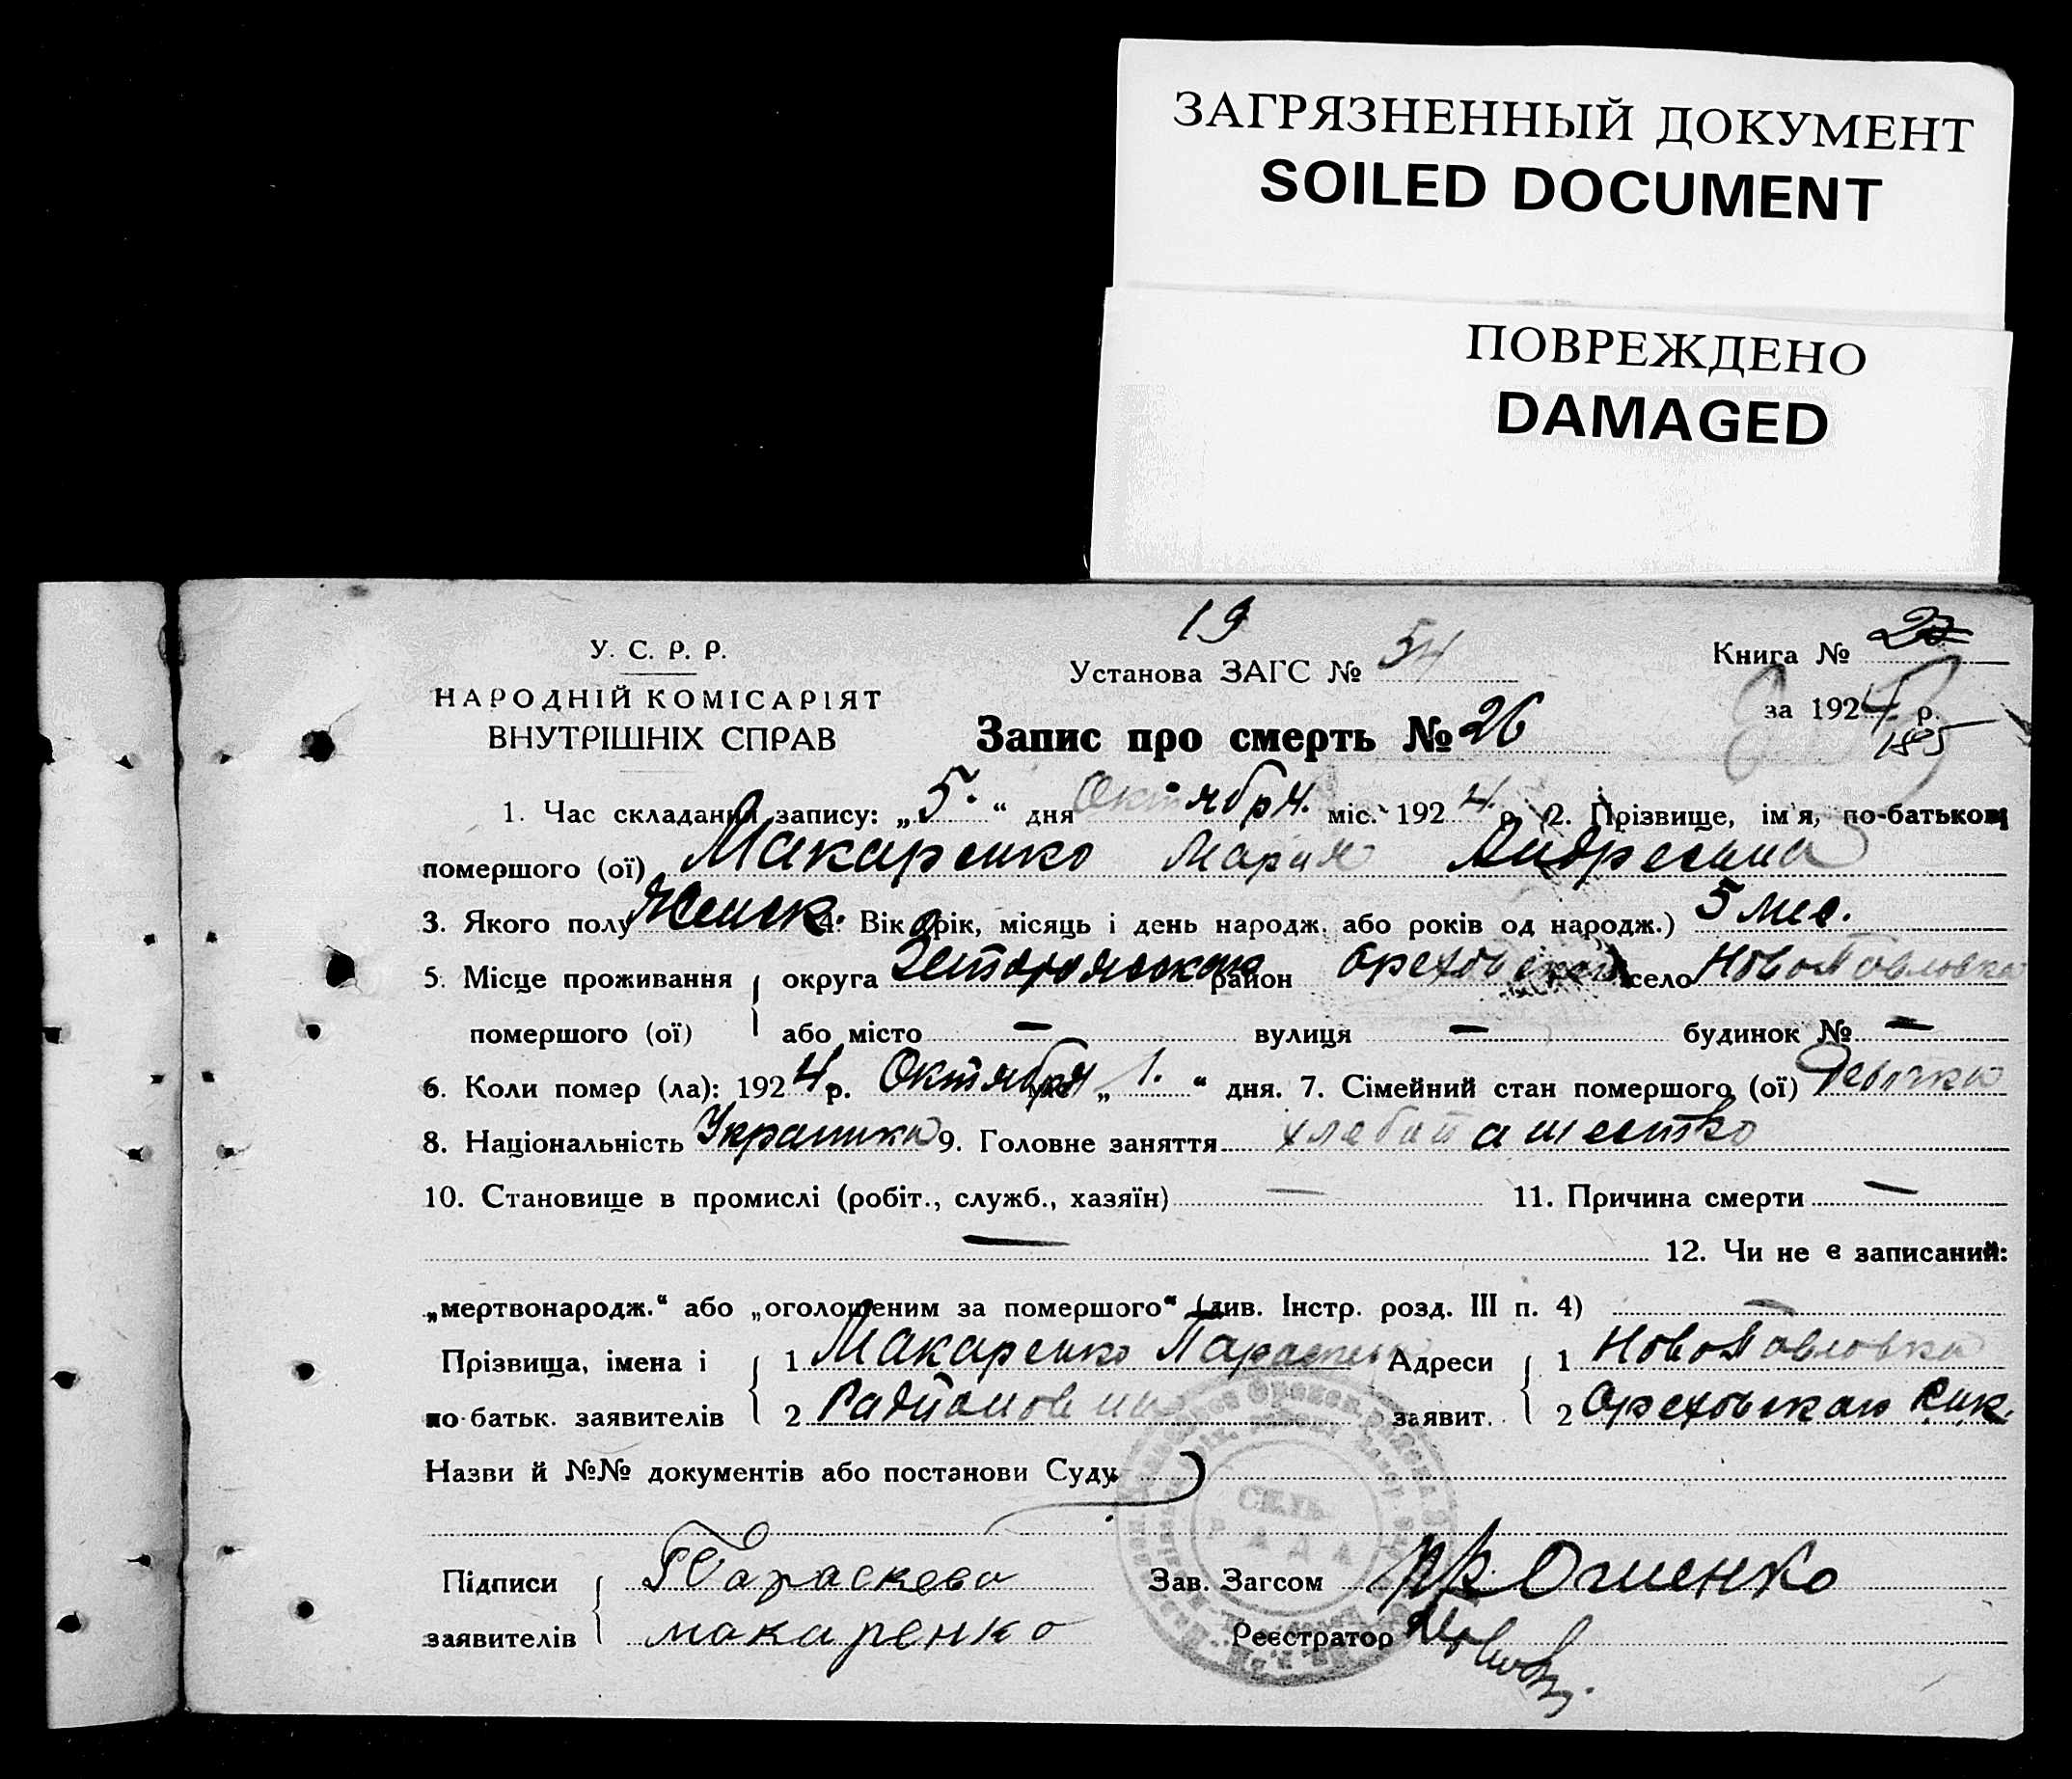 ЗАГРЯЗНЕННЫЙ ДОКУМЕНТ
SOILED DOCUMENT
ПОВРЕЖДЕНО
DAMAGED
19
У. С. Р. Р.
Установа ЗАГС № 54
Книга №
НАРОДНІЙ КОМІСАРІЯТ
ВНУТРІШНІХ СПРАВ
за 1924 р.
Запис про смерть № 26
1. Час складання запису: „5.“ дня Октября міс. 1924 р. 2. Прізвище, ім'я, по-батькові
помершого (ої) Макаренко Мария Андреевна
3. Якого полу Женск. 4. Вік (рік, місяць і день народж. або років од народж.) 5 мес.
5. Місце проживання округа район Ореховский село НовоПавловка
помершого (ої) або місто — вулиця — будинок № —
6. Коли помер (ла): 1924 р. Октября міс. „1.“ дня. 7. Сімейний стан помершого (ої) Девочка
8. Національність Украинка 9. Головне заняття
10. Становище в промислі (робіт., служб., хазяїн) — 11. Причина смерти —
— 12. Чи не є записаний:
„мертвонародж.“ або „оголошеним за помершого“ (див. Інстр. розд. III п. 4) —
Прізвища, імена і 1 Макаренко Адреси 1 НовоПавловка
по-батьк. заявителів 2 заявит. 2 Ореховскаю Рик.
Назви й №№ документів або постанови Суду
СІЛЬ
РАДА
Підписи Параскева Зав. Загсом
заявителів макаренко Реєстратор